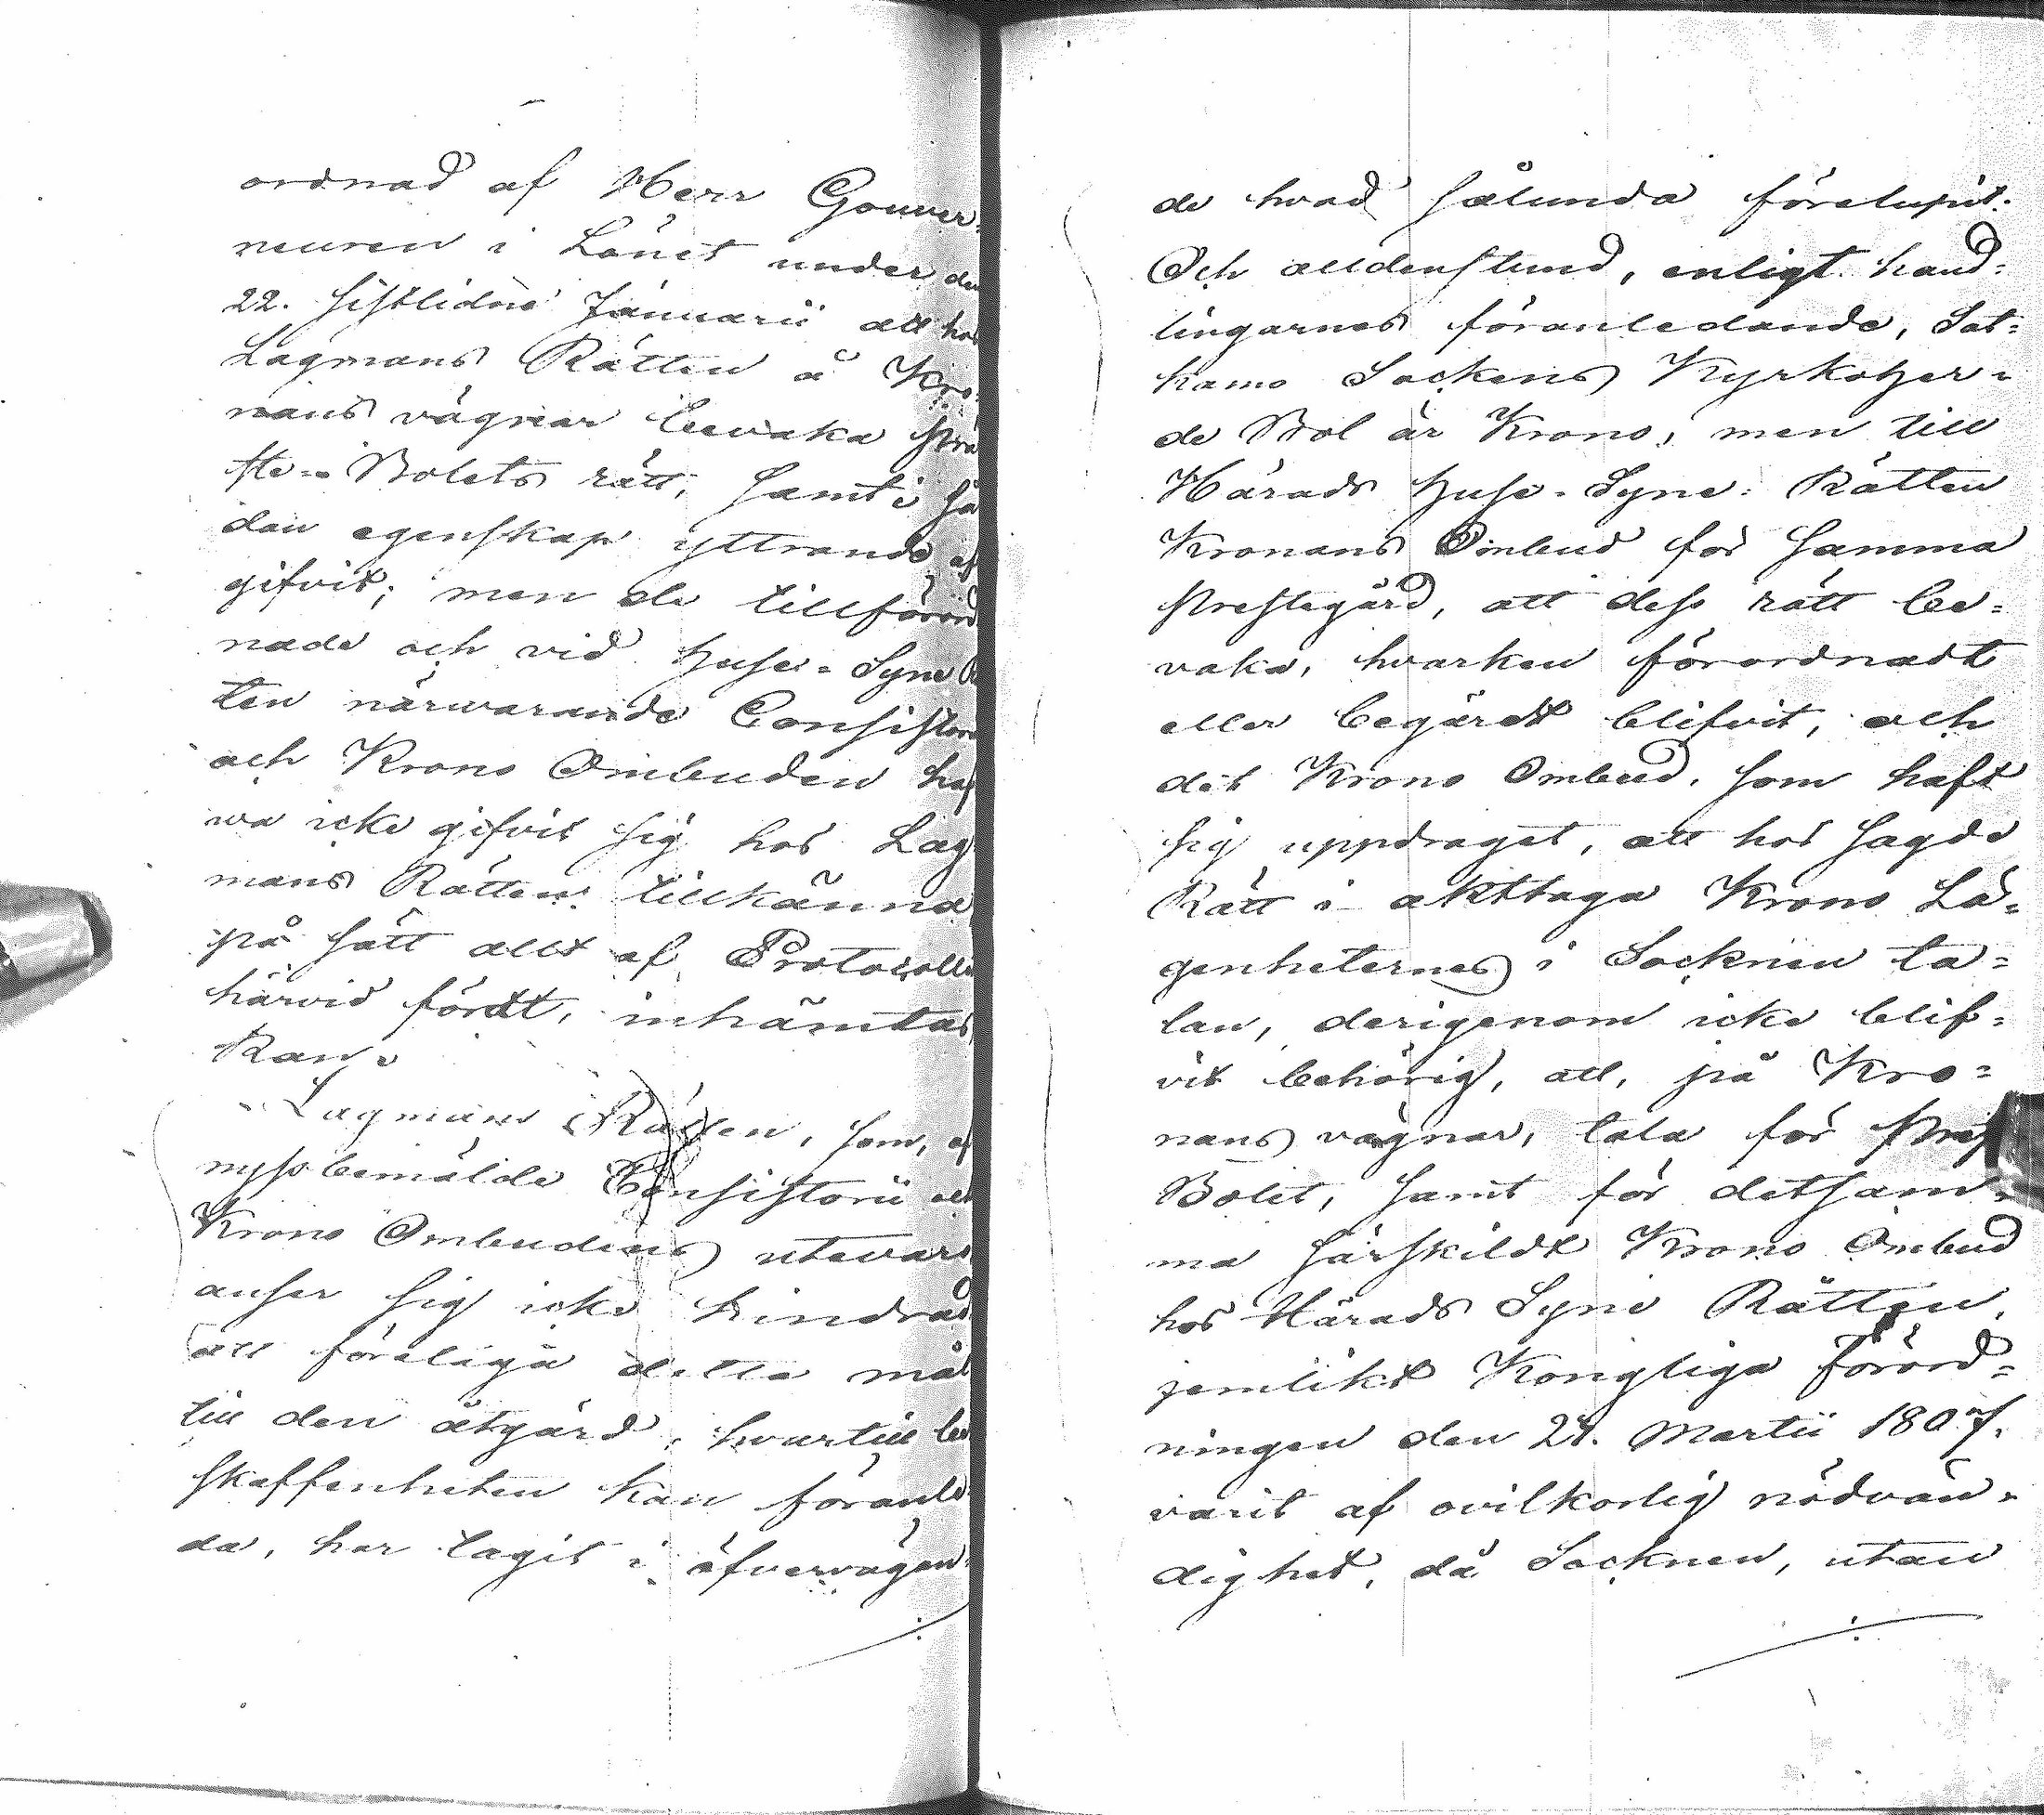 ordnad af Herr Gouver=
neuren i Länet under den
22. sistlidne Januarii att hos
Lagmans Rätten å Kro=
nans vägnar bevaka Prä
ste=Bolets rätt, samt i så
dan egenskap yttrande af
gifvit; men de tillförord
nade och vid Huse=Syne Rä
ten närwarande Consistorii
och Krono Ombuden haf
wa icke gifvit sig hos Lag
mans Rätten tillkänna
på sätt allt af Protocolle
härvid fördt, inhämtas
kan.
Lagmans Rätten, som, af
nyssbemälde Consistorii och
Krono Ombudens utevaro
anser sig icke hindrad
att företaga detta mål
till den åtgärd, hvartill be
skaffenheten kan föranle
da, har tagit i öfvervägan=
de hvad sålunda förelupit.
Och alldenstund, enligt hand=
lingarnes föranledande, Sat=
kamo Sockens Kyrkoher=
de Bol är Krono, men till
Härads Huse=Syne=Rätten
Kronans Ombud för samma
Prestegård, att dess rätt be=
vaka, hvarken förordnadt
eller begärdt blifvit, och
det Krono Ombud, som haft
sig uppdraget, att hos sagde
Rätt i akttaga Krono Lä=
genheternes i Socknen ta=
lan, derigenom icke blif=
vit behörig, att, på Kro=
nans vägnar, tala för Prest
Bolet, samt för detsam=
ma särskildt Krono Ombud
hos Härads Syne Rätten,
jemlikt Kongliga Förord=
ningen den 24. Martii 1807.
varit af ovilkorlig nödvän=
dighet, då Socknen, utan